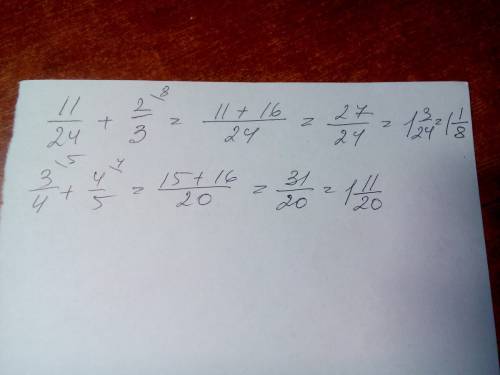 11/24 + 2/3 \8 = (11 + 16)/24 = 27/24 = 1 3/24 = 1 1/8
3/4 \5 + 4/5 \4 = (15 + 16)/20 = 31/20 = 1 11/20